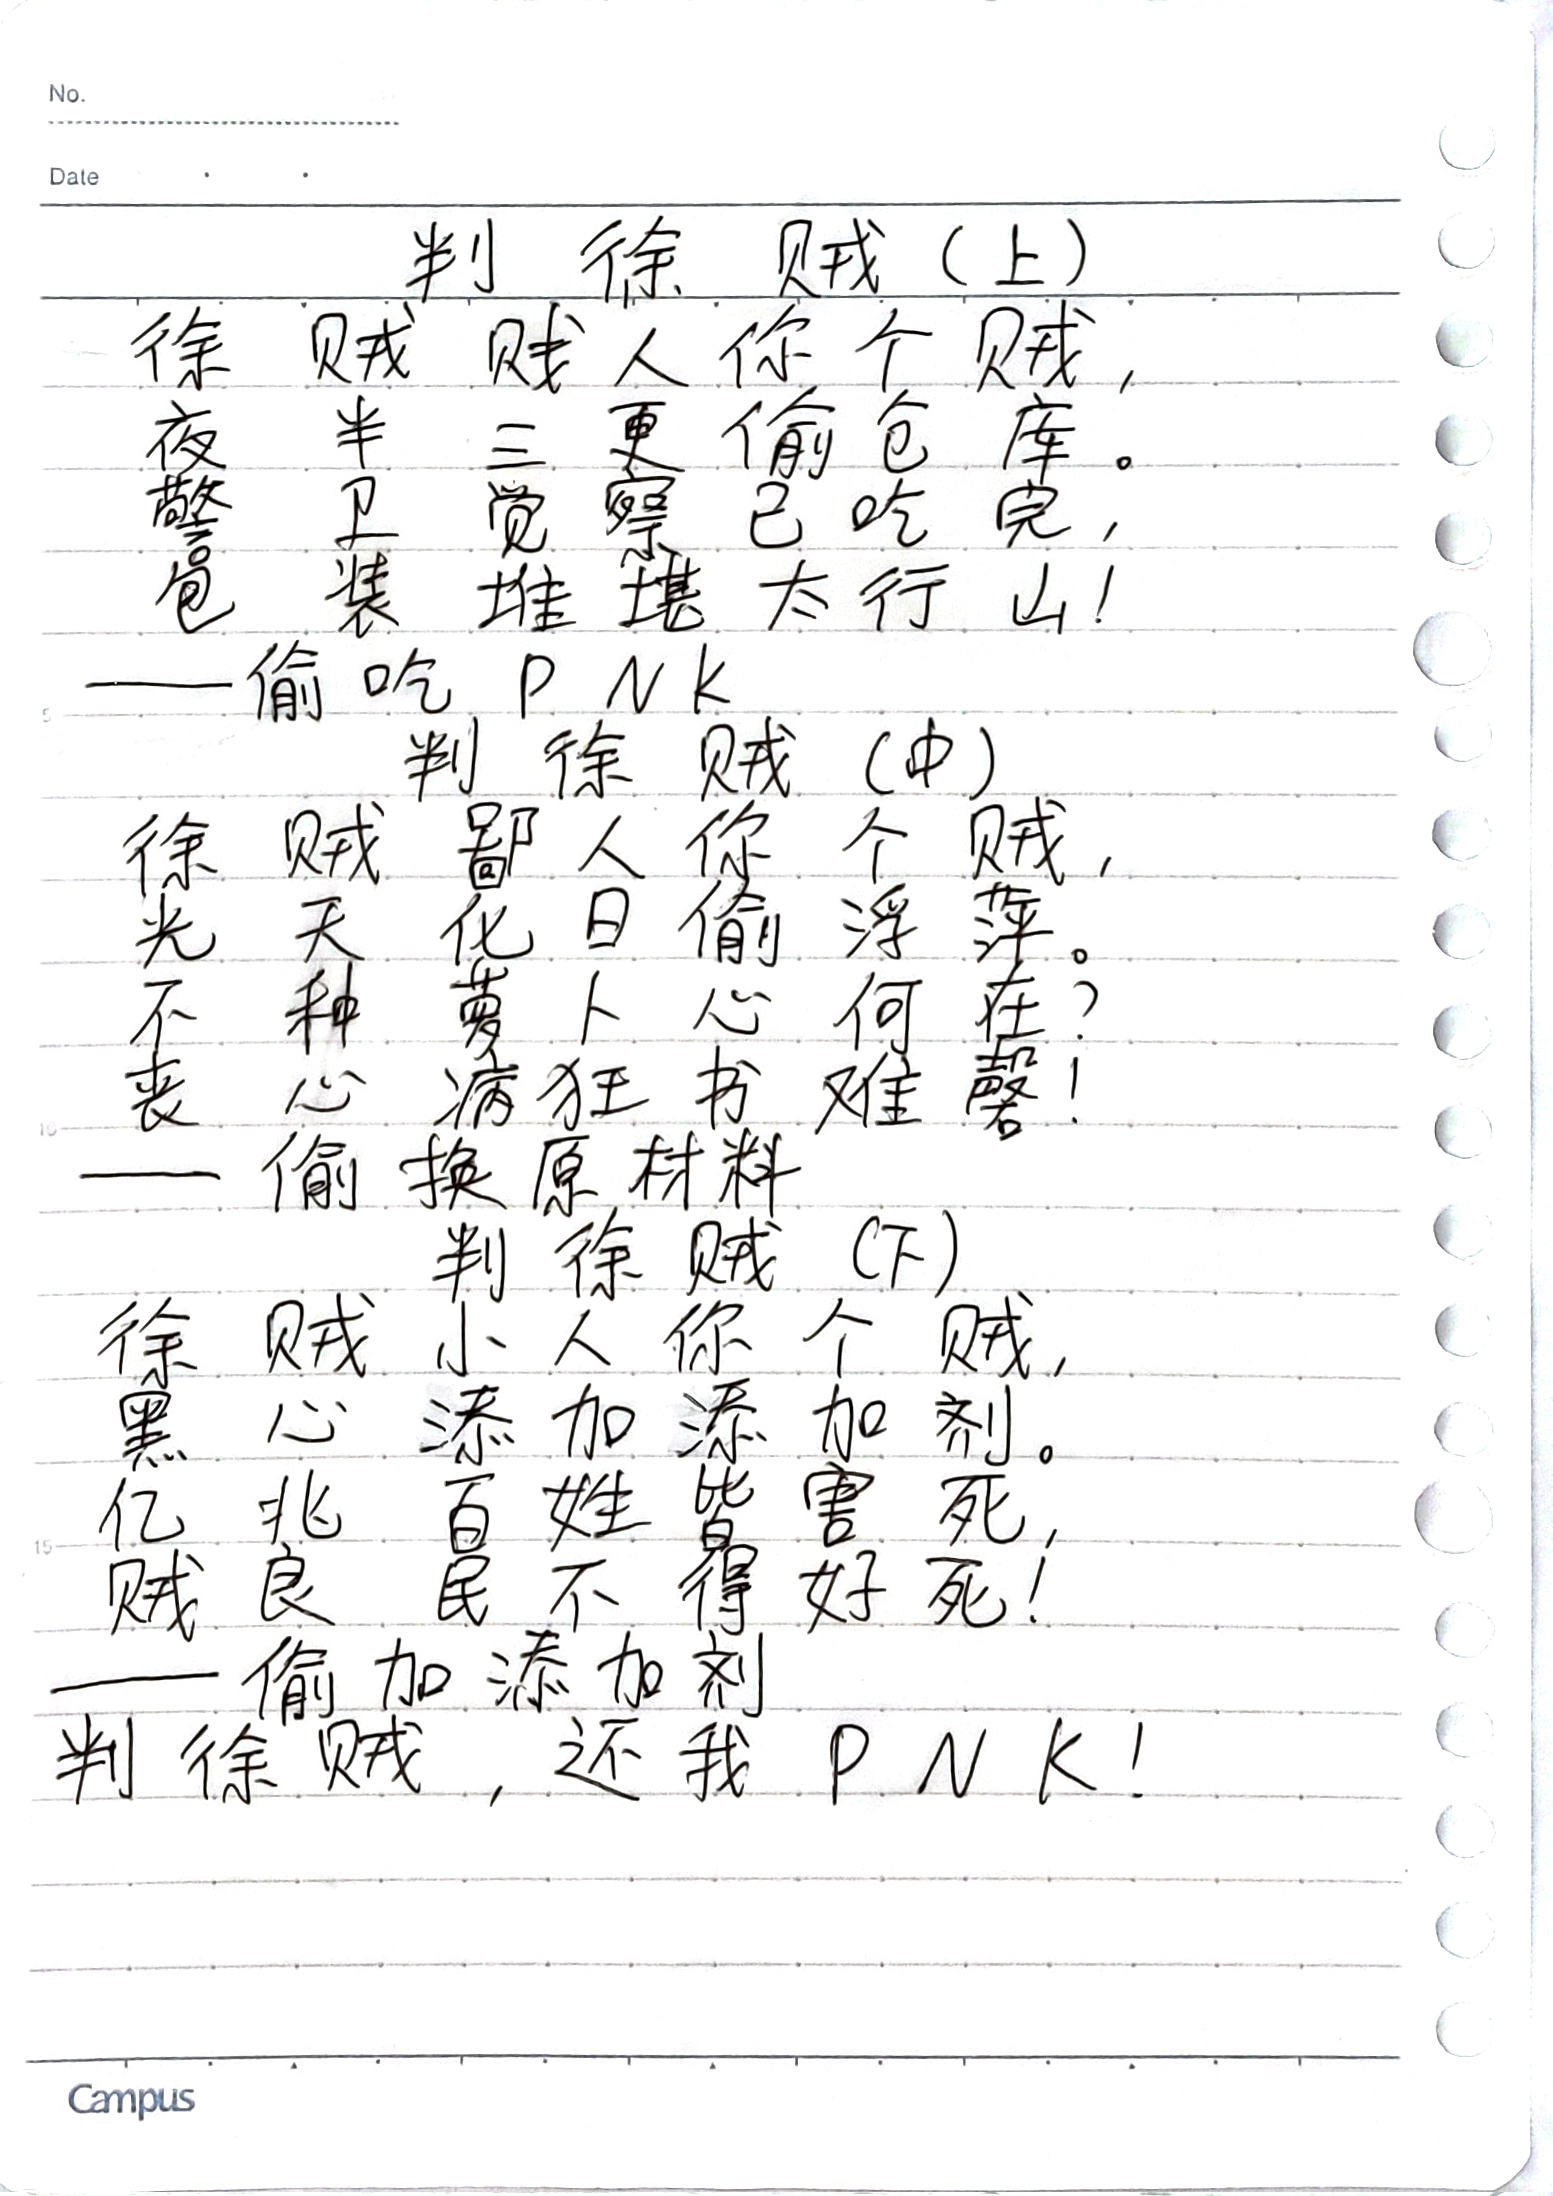 No.
Date
判徐贼(上)
徐贼贱人你个贼,
夜半三更偷仓库。
警卫觉察已吃完,
包装堆堪太行山!
——偷吃PNK
5
判徐贼(中)
徐贼鄙人你个贼,
光天化日偷浮萍。
不种萝卜心何在?
丧心病狂书难磬!
10
——偷换原材料
判徐贼(下)
徐贼小人你个贼,
黑心添加添加剂。
亿兆百姓皆害死,
15
贼良民不得好死!
——偷加添加剂
判徐贼,还我PNK!
Campus